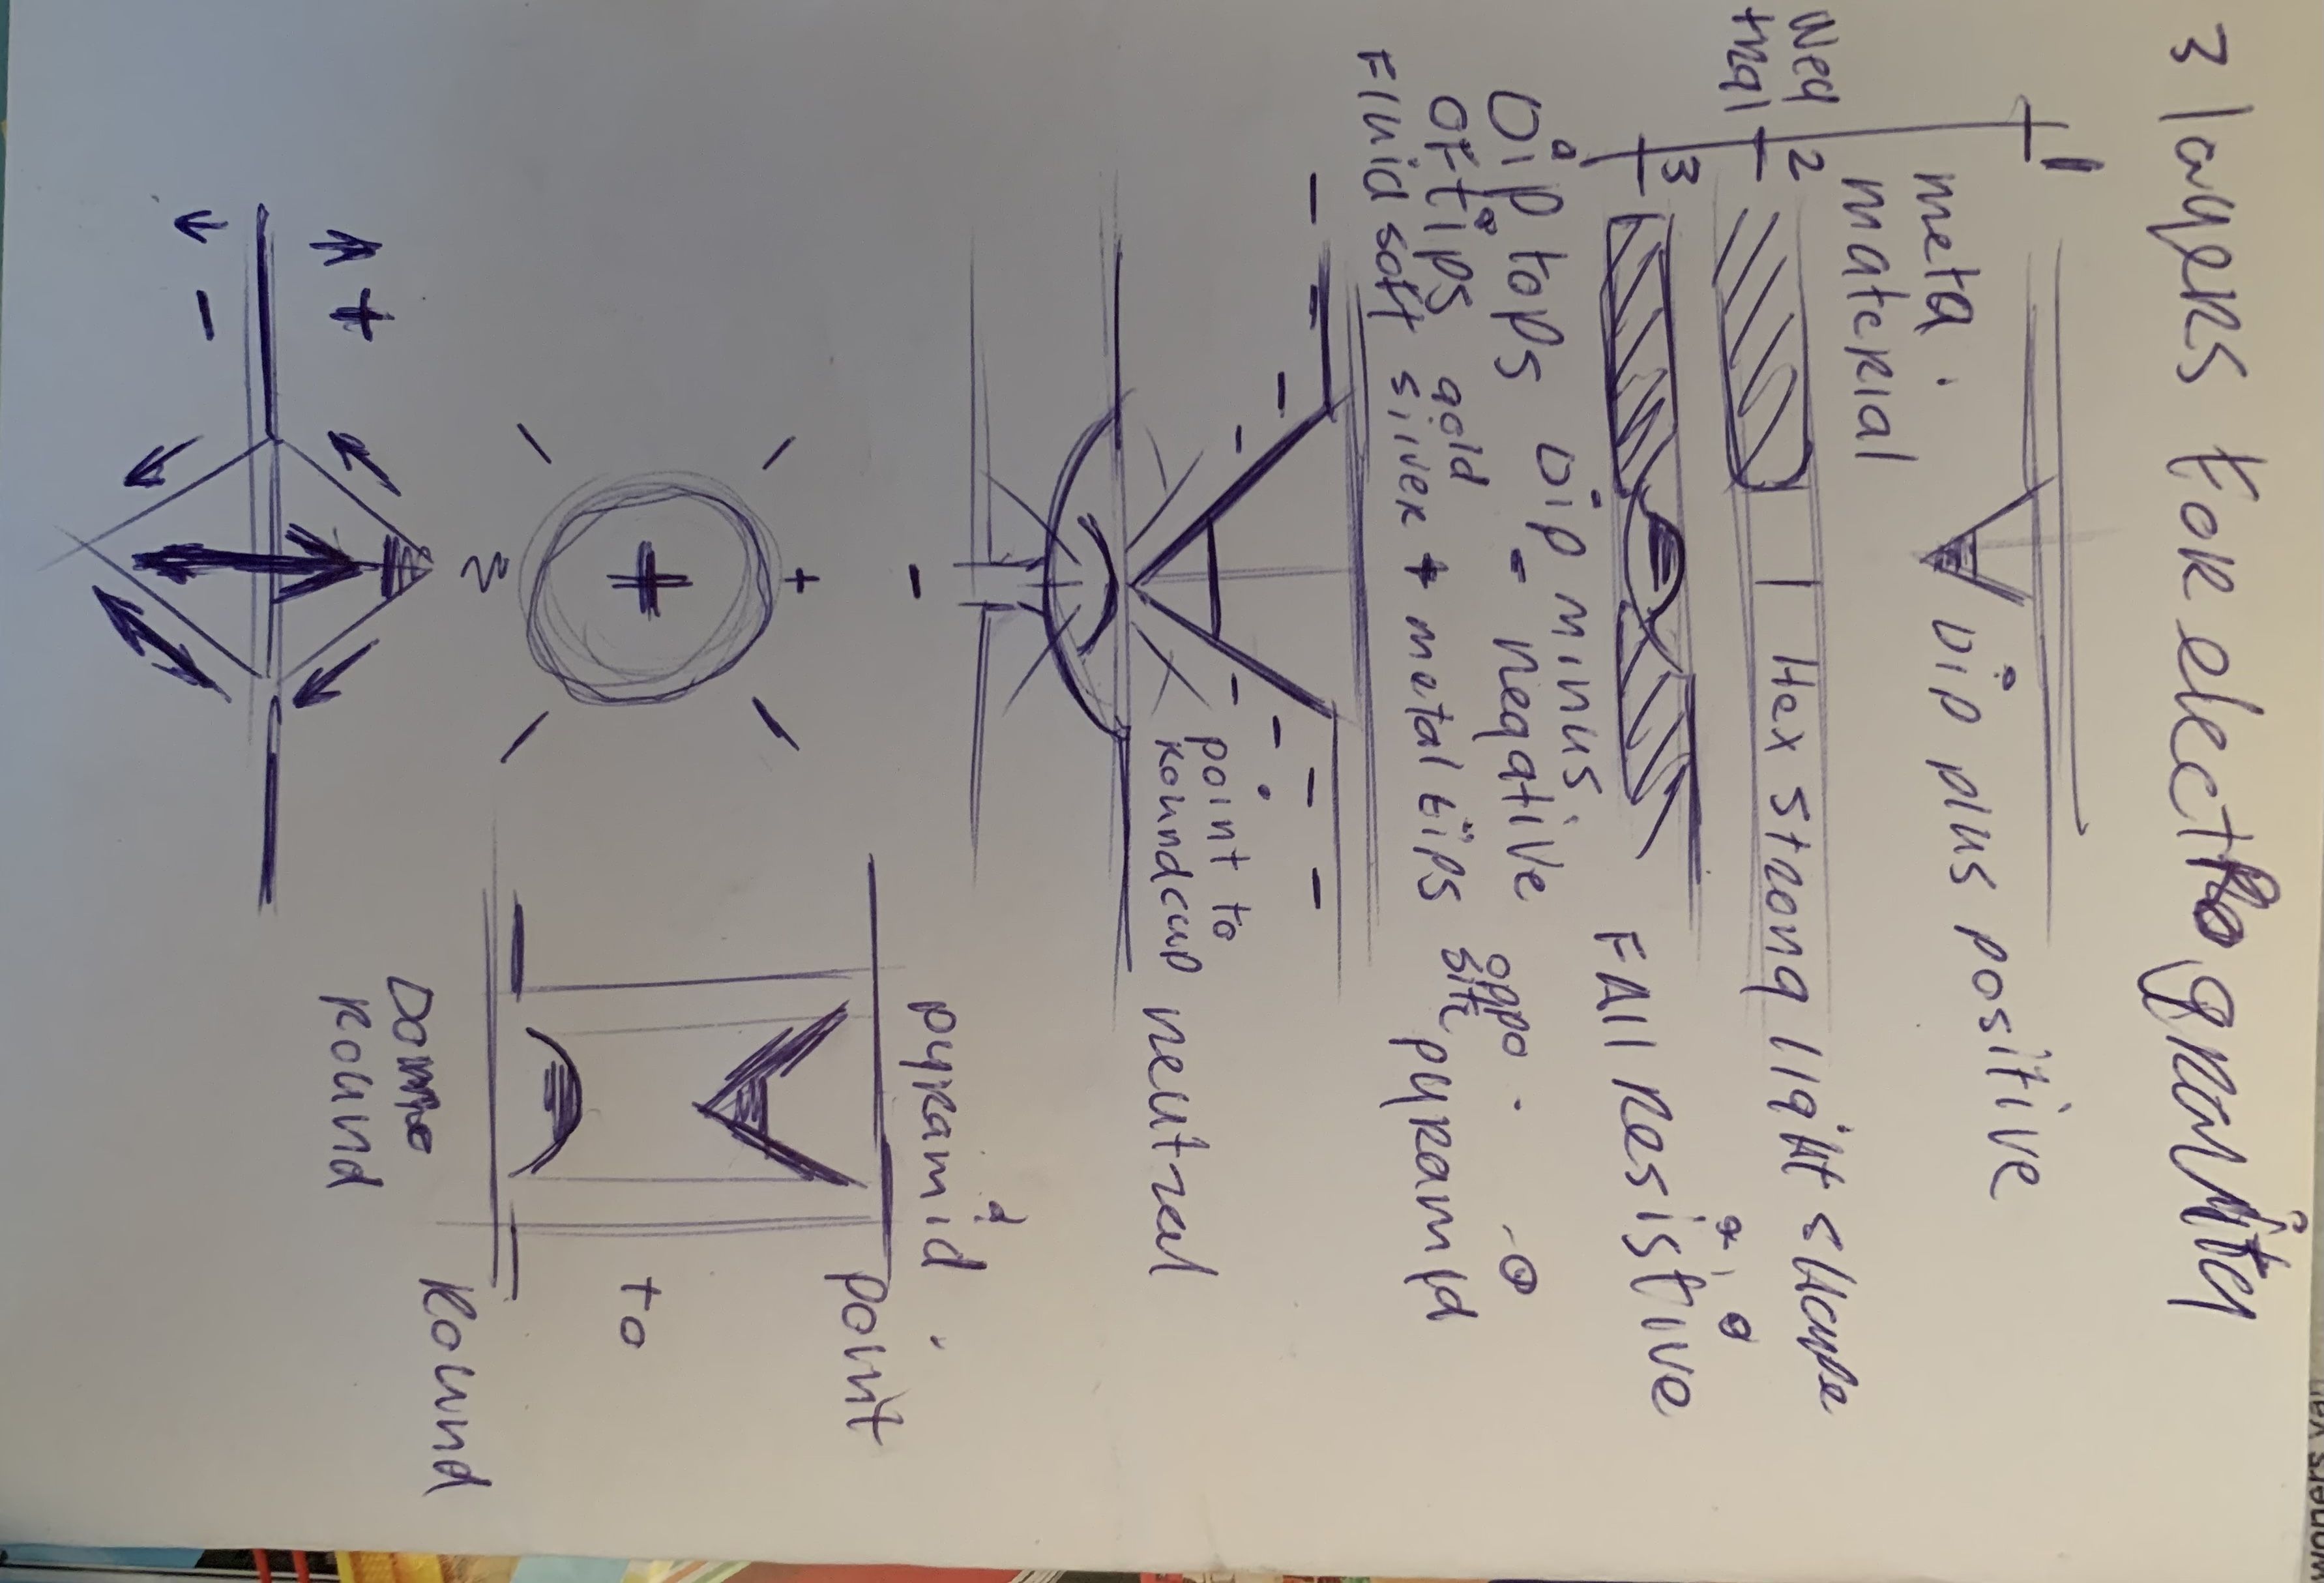 3 layers for electrogravity
+ 1
meta
material
Dip plus positive
2
Hex strong light shape
3
FAll Resistive
Dip tops Dip minus
- = negative
OF tips gold
Fluid soft silver + metal tips
oppo
pyramid
point to
roundcup
neutral
pyramid
point
to
Round
Dome
Round
+
-